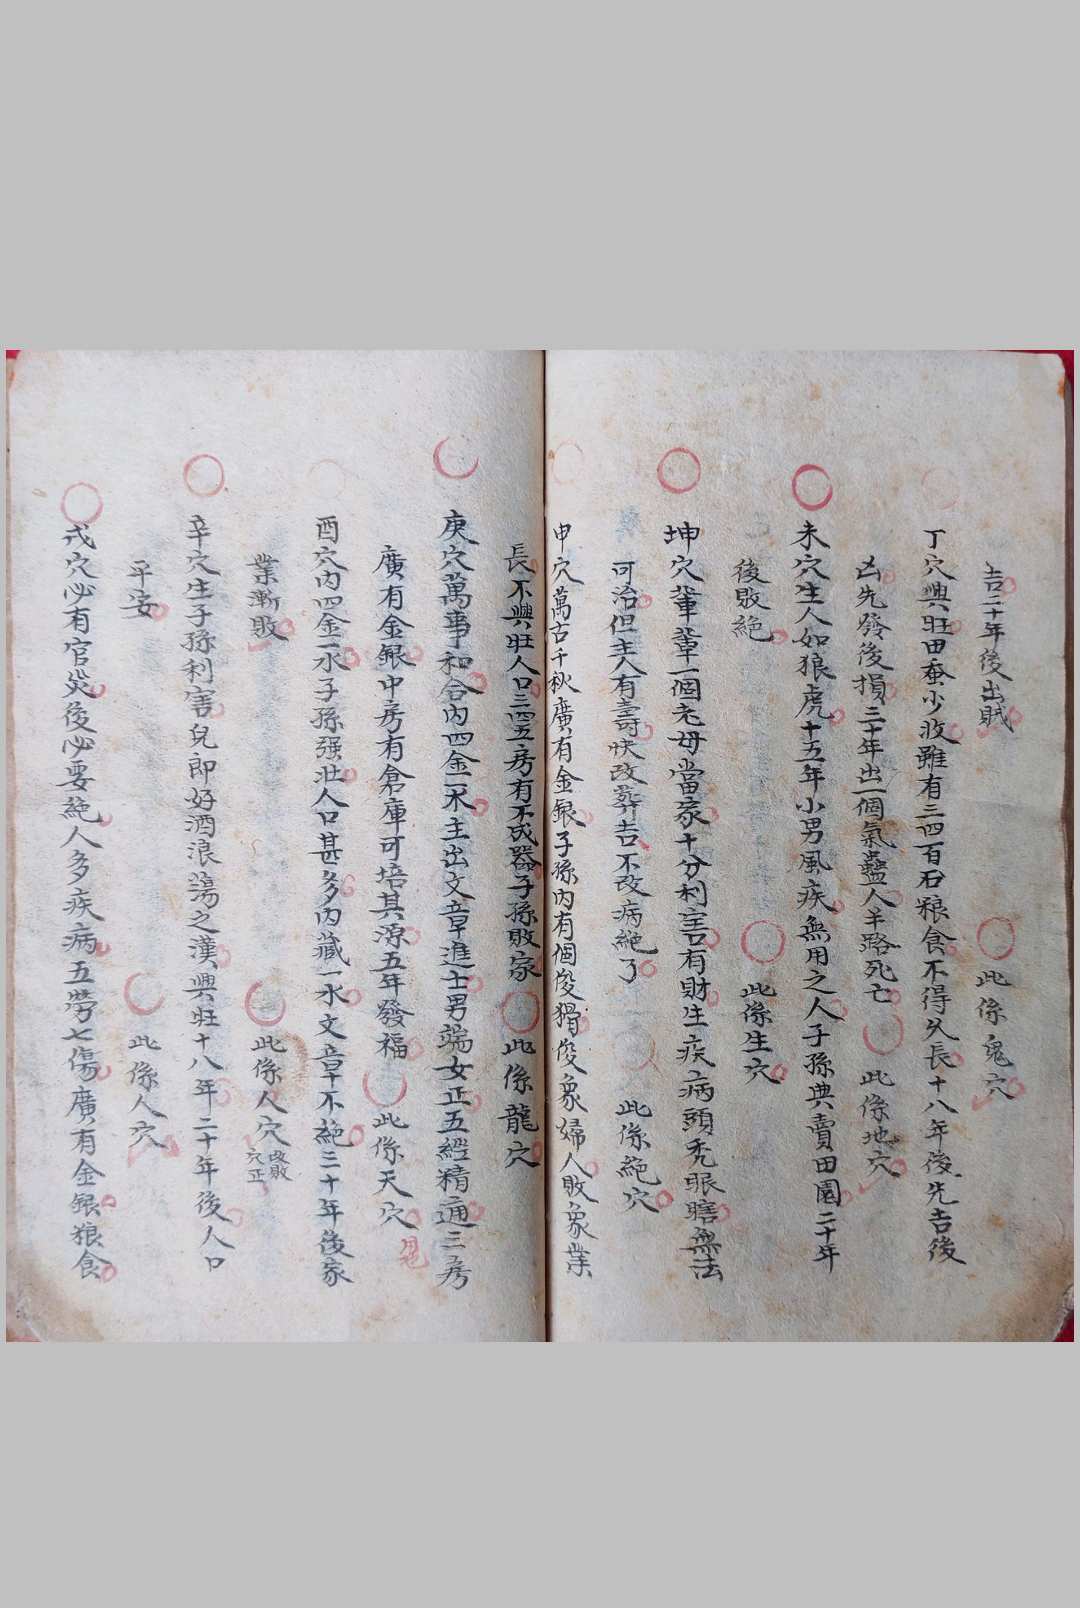 吉二十年後出賊　此係鬼穴
丁穴興旺田蚕少收雖有三四百石粮食不得久長十八年後先吉後
凶先發後損三十年出一個氣蠱人半路死亡　此係地穴
未穴生人如狼虎十五年小男風疾無用之人子孫典賣田園二十年
後敗絕　此係生穴
坤穴輩輩一個老母當家十分利害有財生疾病頭秃眼瞎無法
可治但主人有壽快改葬吉不改病絕了　此係絕穴
申穴萬古千秋廣有金銀子孫内有個俊猾俊象婦人敗象業
長不興旺人口三四五房有不成器子孫敗家　此係龍穴
庚穴萬事和合内四金一木主出文章進士男端女正五經精通三房
廣有金銀中房有倉庫可培其源五年發福　此係天穴
酉穴内四金一水子孫强壯人口甚多内藏一水文章不絕三十年後家
業漸敗　此係人穴
改敗
穴正
辛穴生子孫利害兒郎好酒浪蕩之漢興旺十八年二十年後人口
平安　此係人穴
戌穴必有官災後必要絕人多疾病五勞七傷廣有金銀粮食